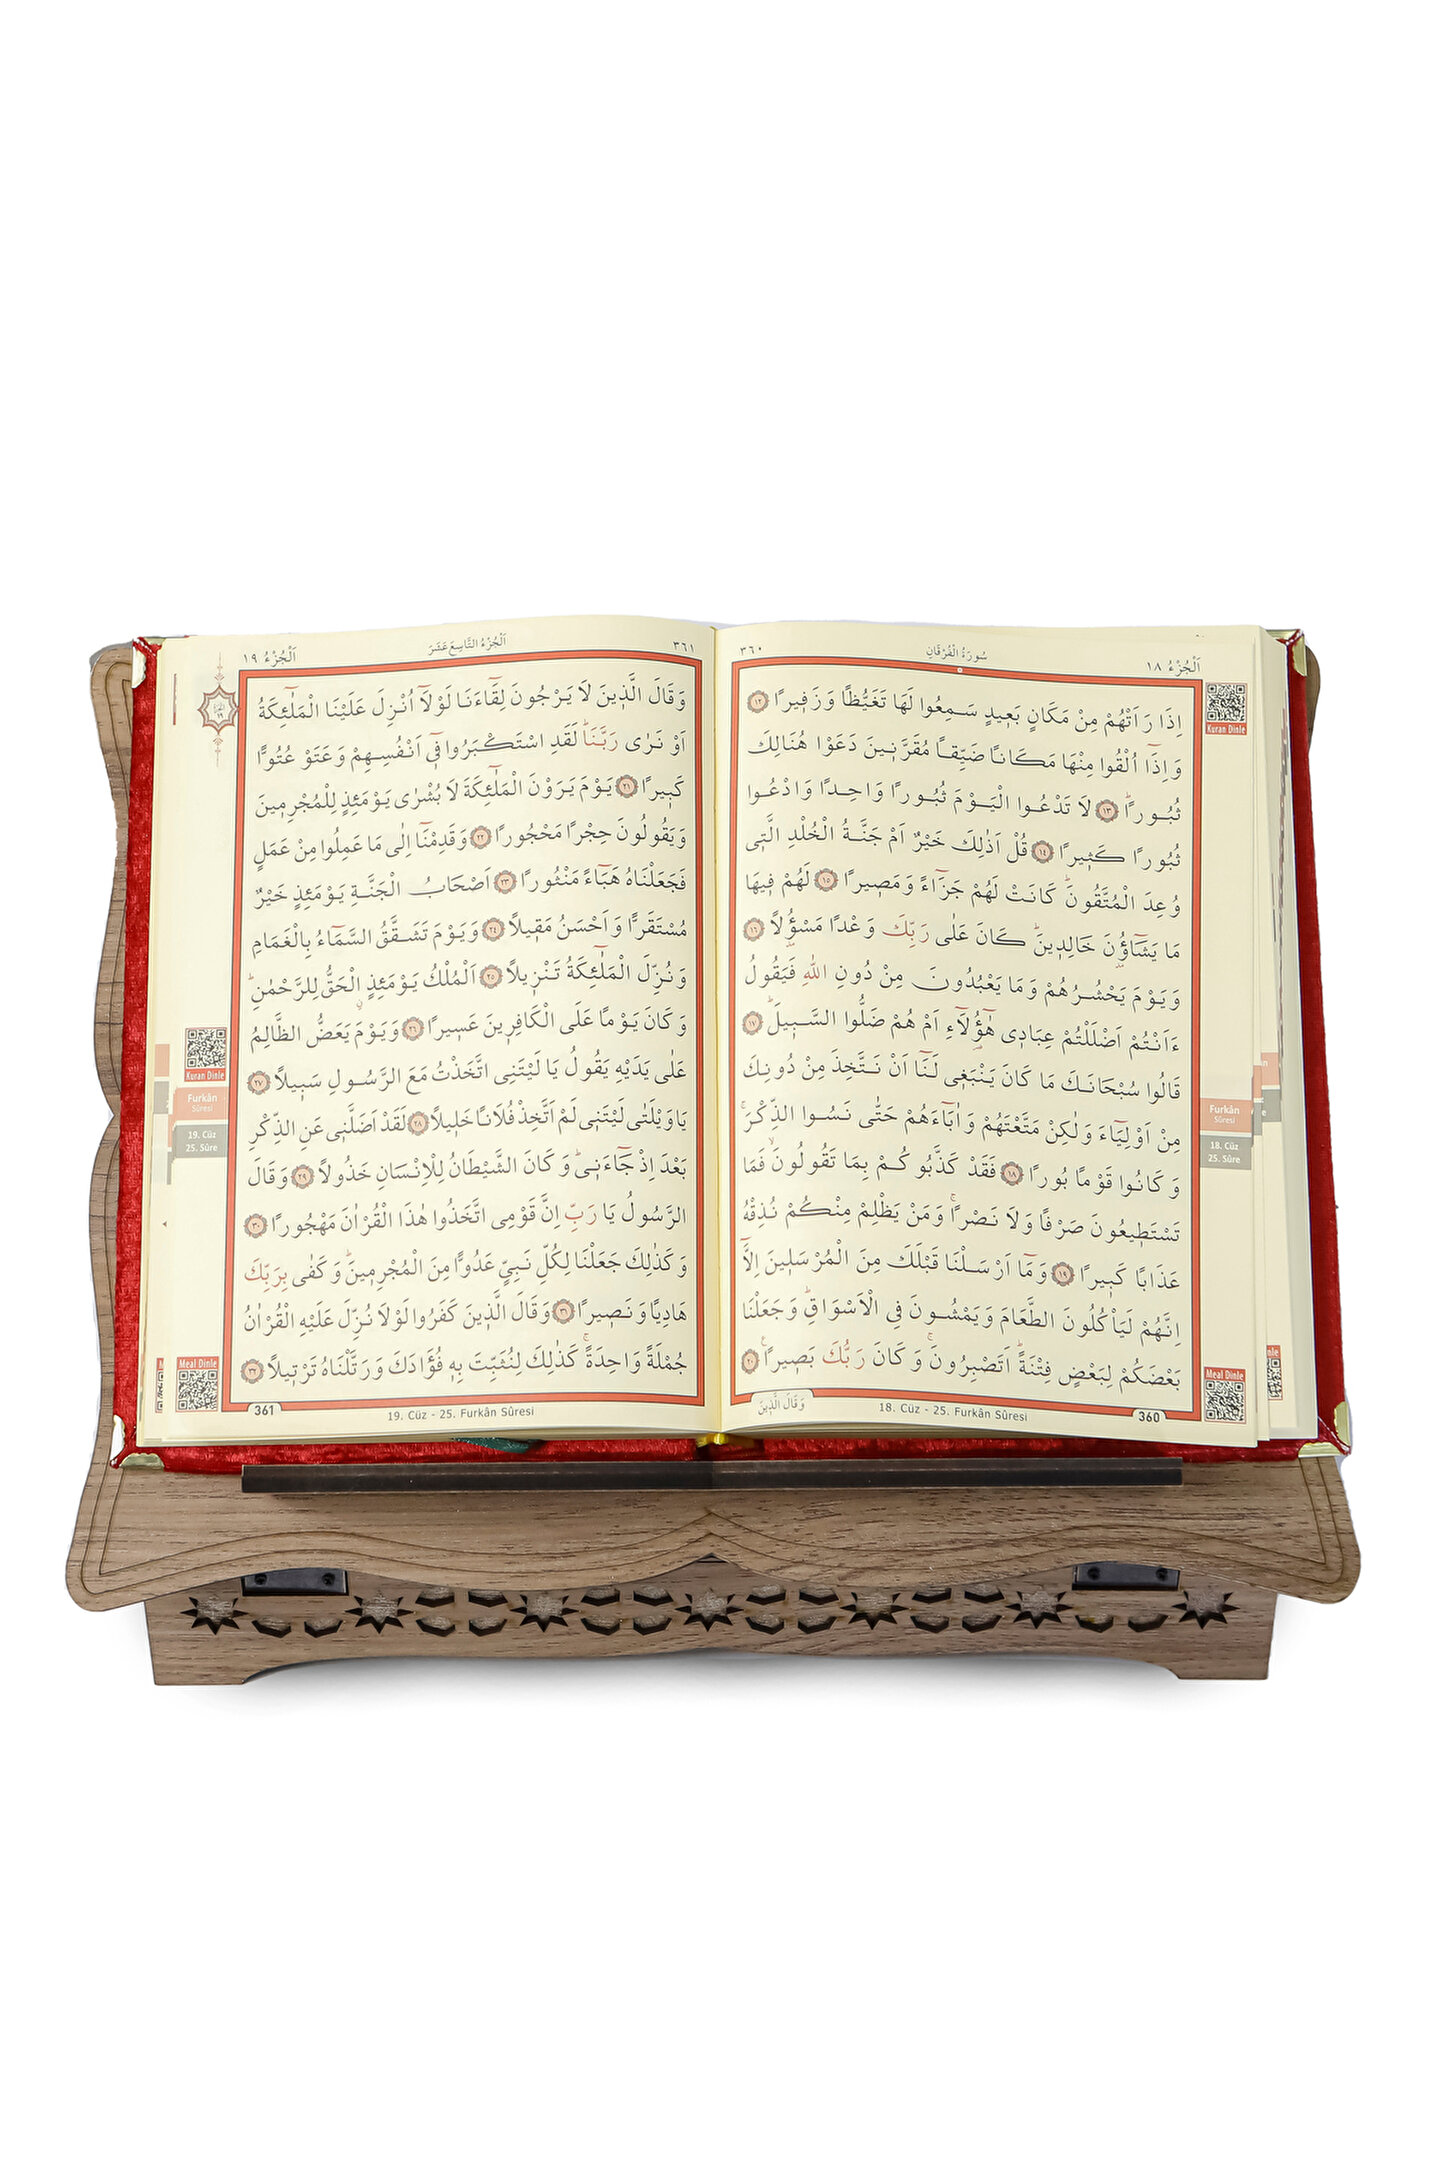 اَلْجُزْءُ ١٨
سُورَةُ الْفُرْقَانِ
٣٦٠
اِذَا رَاَتْهُمْ مِنْ مَكَانٍ بَع۪يدٍ سَمِعُوا لَهَا تَغَيُّظًا وَزَف۪يرًا ١٢
وَاِذَٓا اُلْقُوا مِنْهَا مَكَانًا ضَيِّقًا مُقَرَّن۪ينَ دَعَوْا هُنَالِكَ
ثُبُورًاۜ ١٣ لَا تَدْعُوا الْيَوْمَ ثُبُورًا وَاحِدًا وَادْعُوا
ثُبُورًا كَث۪يرًا ١٤ قُلْ اَذٰلِكَ خَيْرٌ اَمْ جَنَّةُ الْخُلْدِ الَّت۪ي
وُعِدَ الْمُتَّقُونَۜ كَانَتْ لَهُمْ جَزَٓاءً وَمَص۪يرًا ١٥ لَهُمْ ف۪يهَا
مَا يَشَٓاؤُ۫نَ خَالِد۪ينَۜ كَانَ عَلٰى رَبِّكَ وَعْدًا مَسْؤُ۫لًا ١٦
وَيَوْمَ يَحْشُرُهُمْ وَمَا يَعْبُدُونَ مِنْ دُونِ اللّٰهِ فَيَقُولُ
ءَاَنْتُمْ اَضْلَلْتُمْ عِبَاد۪ي هٰٓؤُ۬لَٓاءِ اَمْ هُمْ ضَلُّوا السَّب۪يلَۜ ١٧
قَالُوا سُبْحَانَكَ مَا كَانَ يَنْبَغ۪ي لَنَٓا اَنْ نَتَّخِذَ مِنْ دُونِكَ
مِنْ اَوْلِيَٓاءَ وَلٰكِنْ مَتَّعْتَهُمْ وَاٰبَٓاءَهُمْ حَتّٰى نَسُوا الذِّكْرَۚ
وَكَانُوا قَوْمًا بُورًا ١٨ فَقَدْ كَذَّبُوكُمْ بِمَا تَقُولُونَۙ فَمَا
تَسْتَط۪يعُونَ صَرْفًا وَلَا نَصْرًاۚ وَمَنْ يَظْلِمْ مِنْكُمْ نُذِقْهُ
عَذَابًا كَب۪يرًا ١٩ وَمَٓا اَرْسَلْنَا قَبْلَكَ مِنَ الْمُرْسَل۪ينَ اِلَّٓا
اِنَّهُمْ لَيَأْكُلُونَ الطَّعَامَ وَيَمْشُونَ فِي الْاَسْوَاقِۜ وَجَعَلْنَا
بَعْضَكُمْ لِبَعْضٍ فِتْنَةًۜ اَتَصْبِرُونَۚ وَكَانَ رَبُّكَ بَص۪يرًا۟ ٢٠
وَقَالَ الَّذ۪ينَ
18. Cüz - 25. Furkân Sûresi
360
Kuran Dinle
Furkân
Sûresi
18. Cüz
25. Sûre
Meal Dinle
٣٦١
اَلْجُزْءُ التَّاسِعَ عَشَرَ
اَلْجُزْءُ ١٩
وَقَالَ الَّذ۪ينَ لَا يَرْجُونَ لِقَٓاءَنَا لَوْلَٓا اُنْزِلَ عَلَيْنَا الْمَلٰٓئِكَةُ
اَوْ نَرٰى رَبَّنَاۜ لَقَدِ اسْتَكْبَرُوا ف۪ٓي اَنْفُسِهِمْ وَعَتَوْ عُتُوًّا
كَب۪يرًا ٢١ يَوْمَ يَرَوْنَ الْمَلٰٓئِكَةَ لَا بُشْرٰى يَوْمَئِذٍ لِلْمُجْرِم۪ينَ
وَيَقُولُونَ حِجْرًا مَحْجُورًا ٢٢ وَقَدِمْنَٓا اِلٰى مَا عَمِلُوا مِنْ عَمَلٍ
فَجَعَلْنَاهُ هَبَٓاءً مَنْثُورًا ٢٣ اَصْحَابُ الْجَنَّةِ يَوْمَئِذٍ خَيْرٌ
مُسْتَقَرًّا وَاَحْسَنُ مَق۪يلًا ٢٤ وَيَوْمَ تَشَقَّقُ السَّمَٓاءُ بِالْغَمَامِ
وَنُزِّلَ الْمَلٰٓئِكَةُ تَنْز۪يلًا ٢٥ اَلْمُلْكُ يَوْمَئِذٍۨ الْحَقُّ لِلرَّحْمٰنِۜ
وَكَانَ يَوْمًا عَلَى الْكَافِر۪ينَ عَس۪يرًا ٢٦ وَيَوْمَ يَعَضُّ الظَّالِمُ
عَلٰى يَدَيْهِ يَقُولُ يَا لَيْتَنِي اتَّخَذْتُ مَعَ الرَّسُولِ سَب۪يلًا ٢٧
يَا وَيْلَتٰى لَيْتَن۪ي لَمْ اَتَّخِذْ فُلَانًا خَل۪يلًا ٢٨ لَقَدْ اَضَلَّن۪ي عَنِ الذِّكْرِ
بَعْدَ اِذْ جَٓاءَن۪يۜ وَكَانَ الشَّيْطَانُ لِلْاِنْسَانِ خَذُولًا ٢٩ وَقَالَ
الرَّسُولُ يَا رَبِّ اِنَّ قَوْمِي اتَّخَذُوا هٰذَا الْقُرْاٰنَ مَهْجُورًا ٣٠
وَكَذٰلِكَ جَعَلْنَا لِكُلِّ نَبِيٍّ عَدُوًّا مِنَ الْمُجْرِم۪ينَۜ وَكَفٰى بِرَبِّكَ
هَادِيًا وَنَص۪يرًا ٣١ وَقَالَ الَّذ۪ينَ كَفَرُوا لَوْلَا نُزِّلَ عَلَيْهِ الْقُرْاٰنُ
جُمْلَةً وَاحِدَةًۚ كَذٰلِكَ لِنُثَبِّتَ بِه۪ فُؤَادَكَ وَرَتَّلْنَاهُ تَرْت۪يلًا ٣٢
361
19. Cüz - 25. Furkân Sûresi
Kuran Dinle
Furkân
Sûresi
19. Cüz
25. Sûre
Meal Dinle